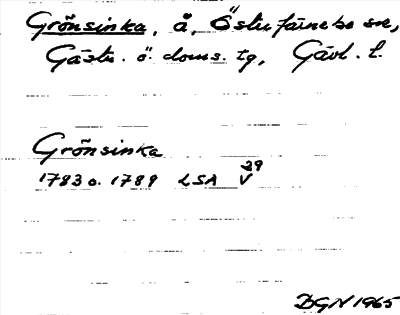 Grönsinka, å, Östufärnebo sn,
Gästr. ö. doms. tg, Gävl. l.
Grönsinka
1783 o. 1789 LSA V 29
DGN 1965